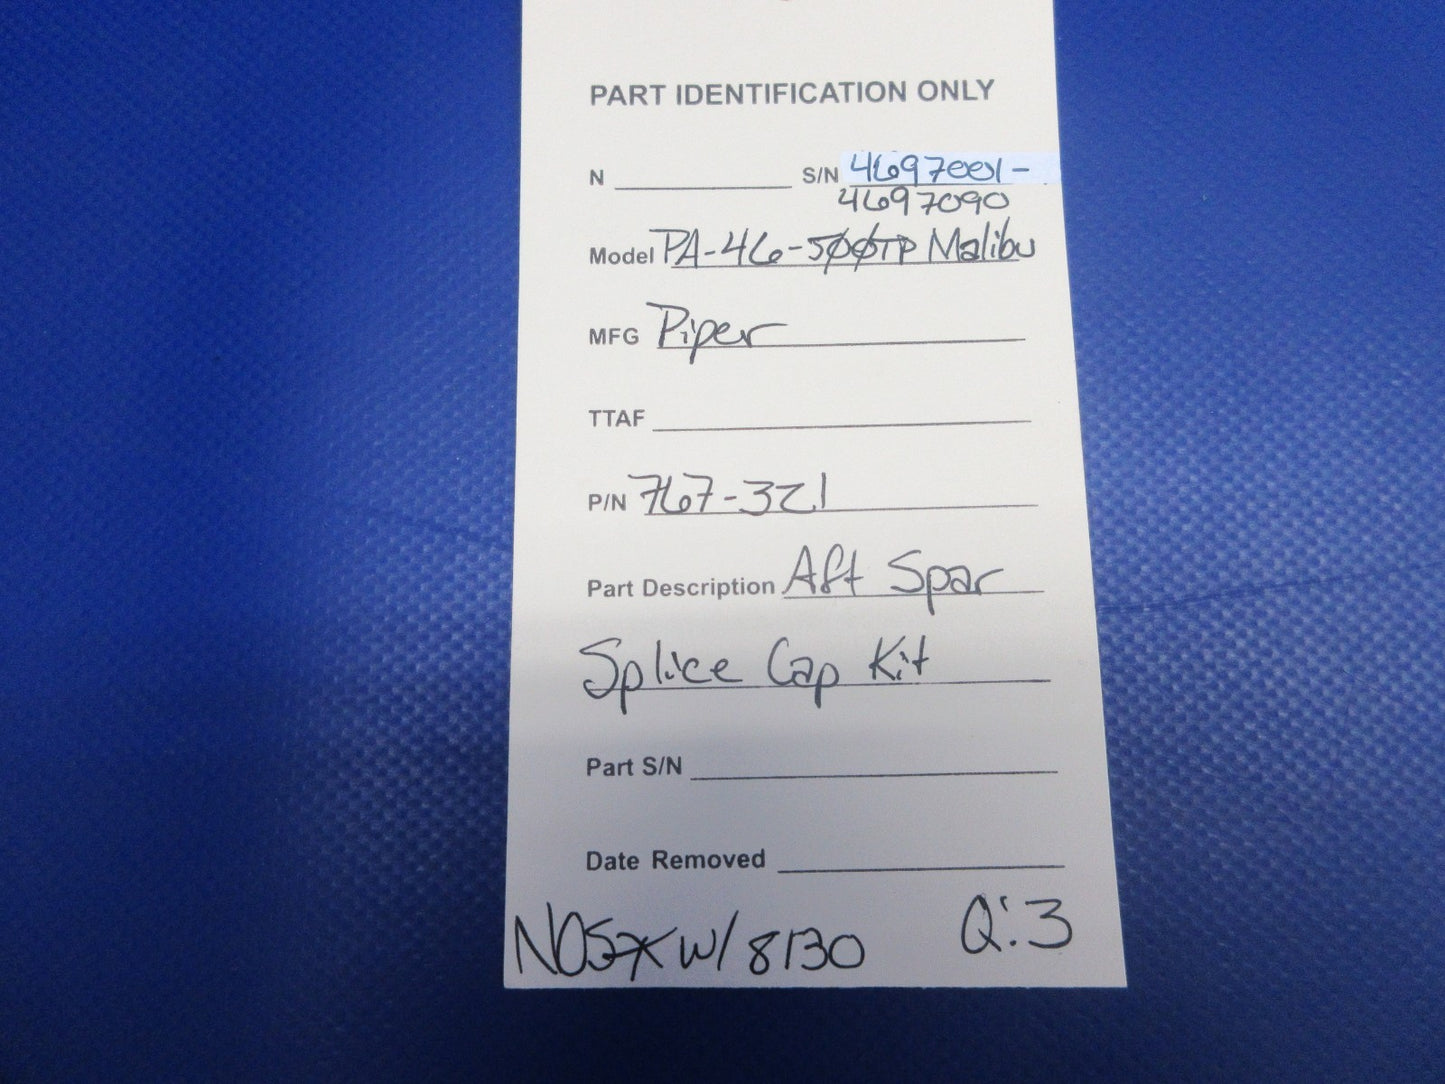 PART IDENTIFICATION ONLY
N S/N 4697001-
4697090
Model PA-46-500TP Malibu
MFG Piper
TTAF
P/N 767-321
Part Description Aft Spar
Splice Cap Kit
Part S/N
Date Removed
W/ 8130 Q:3